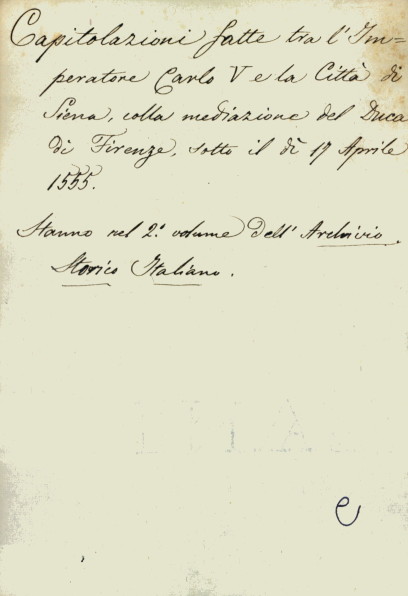 Capitolazioni fatte tra l'Im=
peratore Carlo V e la Città di
Siena, colla mediazione del Duca
di Firenze, sotto il dì 17 Aprile
1555.
Stanno nel 2.º volume dell'Archivio
Storico Italiano.
e